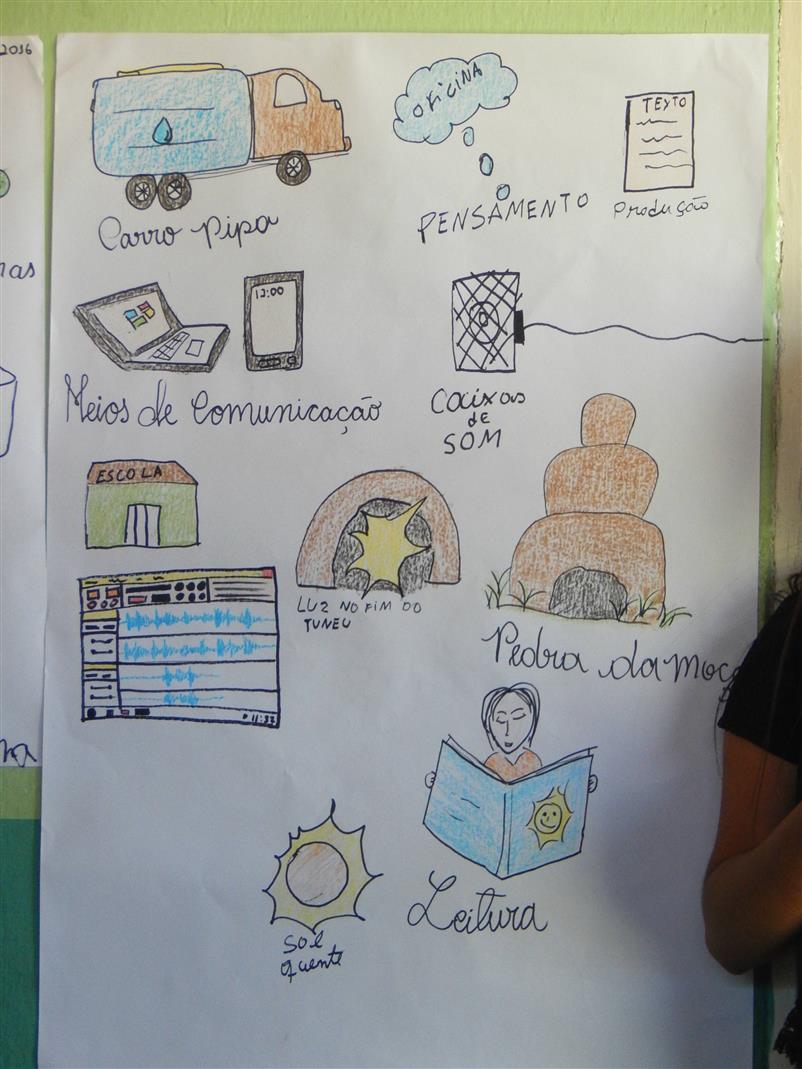 2016
OFICINA
TEXTO
PENSAMENTO
Produção
Carro pipa
mas
12:00
Meios de Comunicação
Caixas
de
SOM
ESCOLA
LUZ NO FIM DO
TUNEU
Pedra da moç
11:33
Leitura
Sol
quente